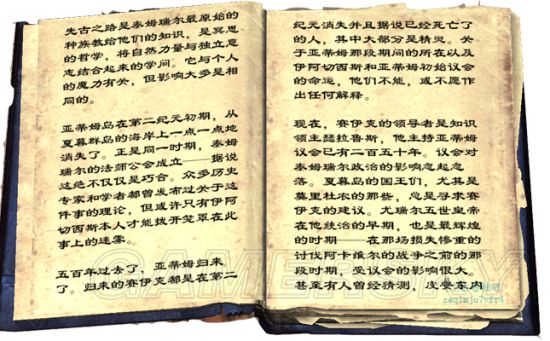 先古之路是泰姆瑞尔最原始的
种族教给他们的知识，是冥思
的哲学，将自然力量与独立意
志结合起来的学问。它与个人
的魔力有关，但影响大多是相
同的。
亚蒂姆岛在第二纪元初期，从
夏暮群岛的海岸上一点一点地
消失了。正是同一时期，泰姆
瑞尔的法师公会成立——据说
这绝不仅仅是巧合。众多历史
专家和学者都曾发布过关于这
件事的理论，但或许只有伊阿
切西斯本人才能拨开笼罩在此
事上的迷雾。
五百年过去了，亚蒂姆归来
了。归来的赛伊克都是在第二
纪元消失并且据说已经死亡了
的人，其中大部分是精灵。关
于亚蒂姆那段期间的所在以及
伊阿切西斯和亚蒂姆初始议会
的命运，他们不能，或不愿作
出任何解释。
现在，赛伊克的领导者是知识
领主瑟拉鲁斯，他主持亚蒂姆
议会已有二百五十年。议会对
泰姆瑞尔政治的影响忽起忽
落。夏暮岛的国王们，尤其是
莫里杜农的那些，总是寻求赛
伊克的建议。尤瑞尔五世皇帝
在他统治的早期，也是最辉煌
的时期——在那场损失惨重的
讨伐阿卡维尔的战争之前的那
段时期，受议会的影响很大。
甚至有人曾经猜测，皮晏东内
GAMERSKY
zaq1mju7vfr4